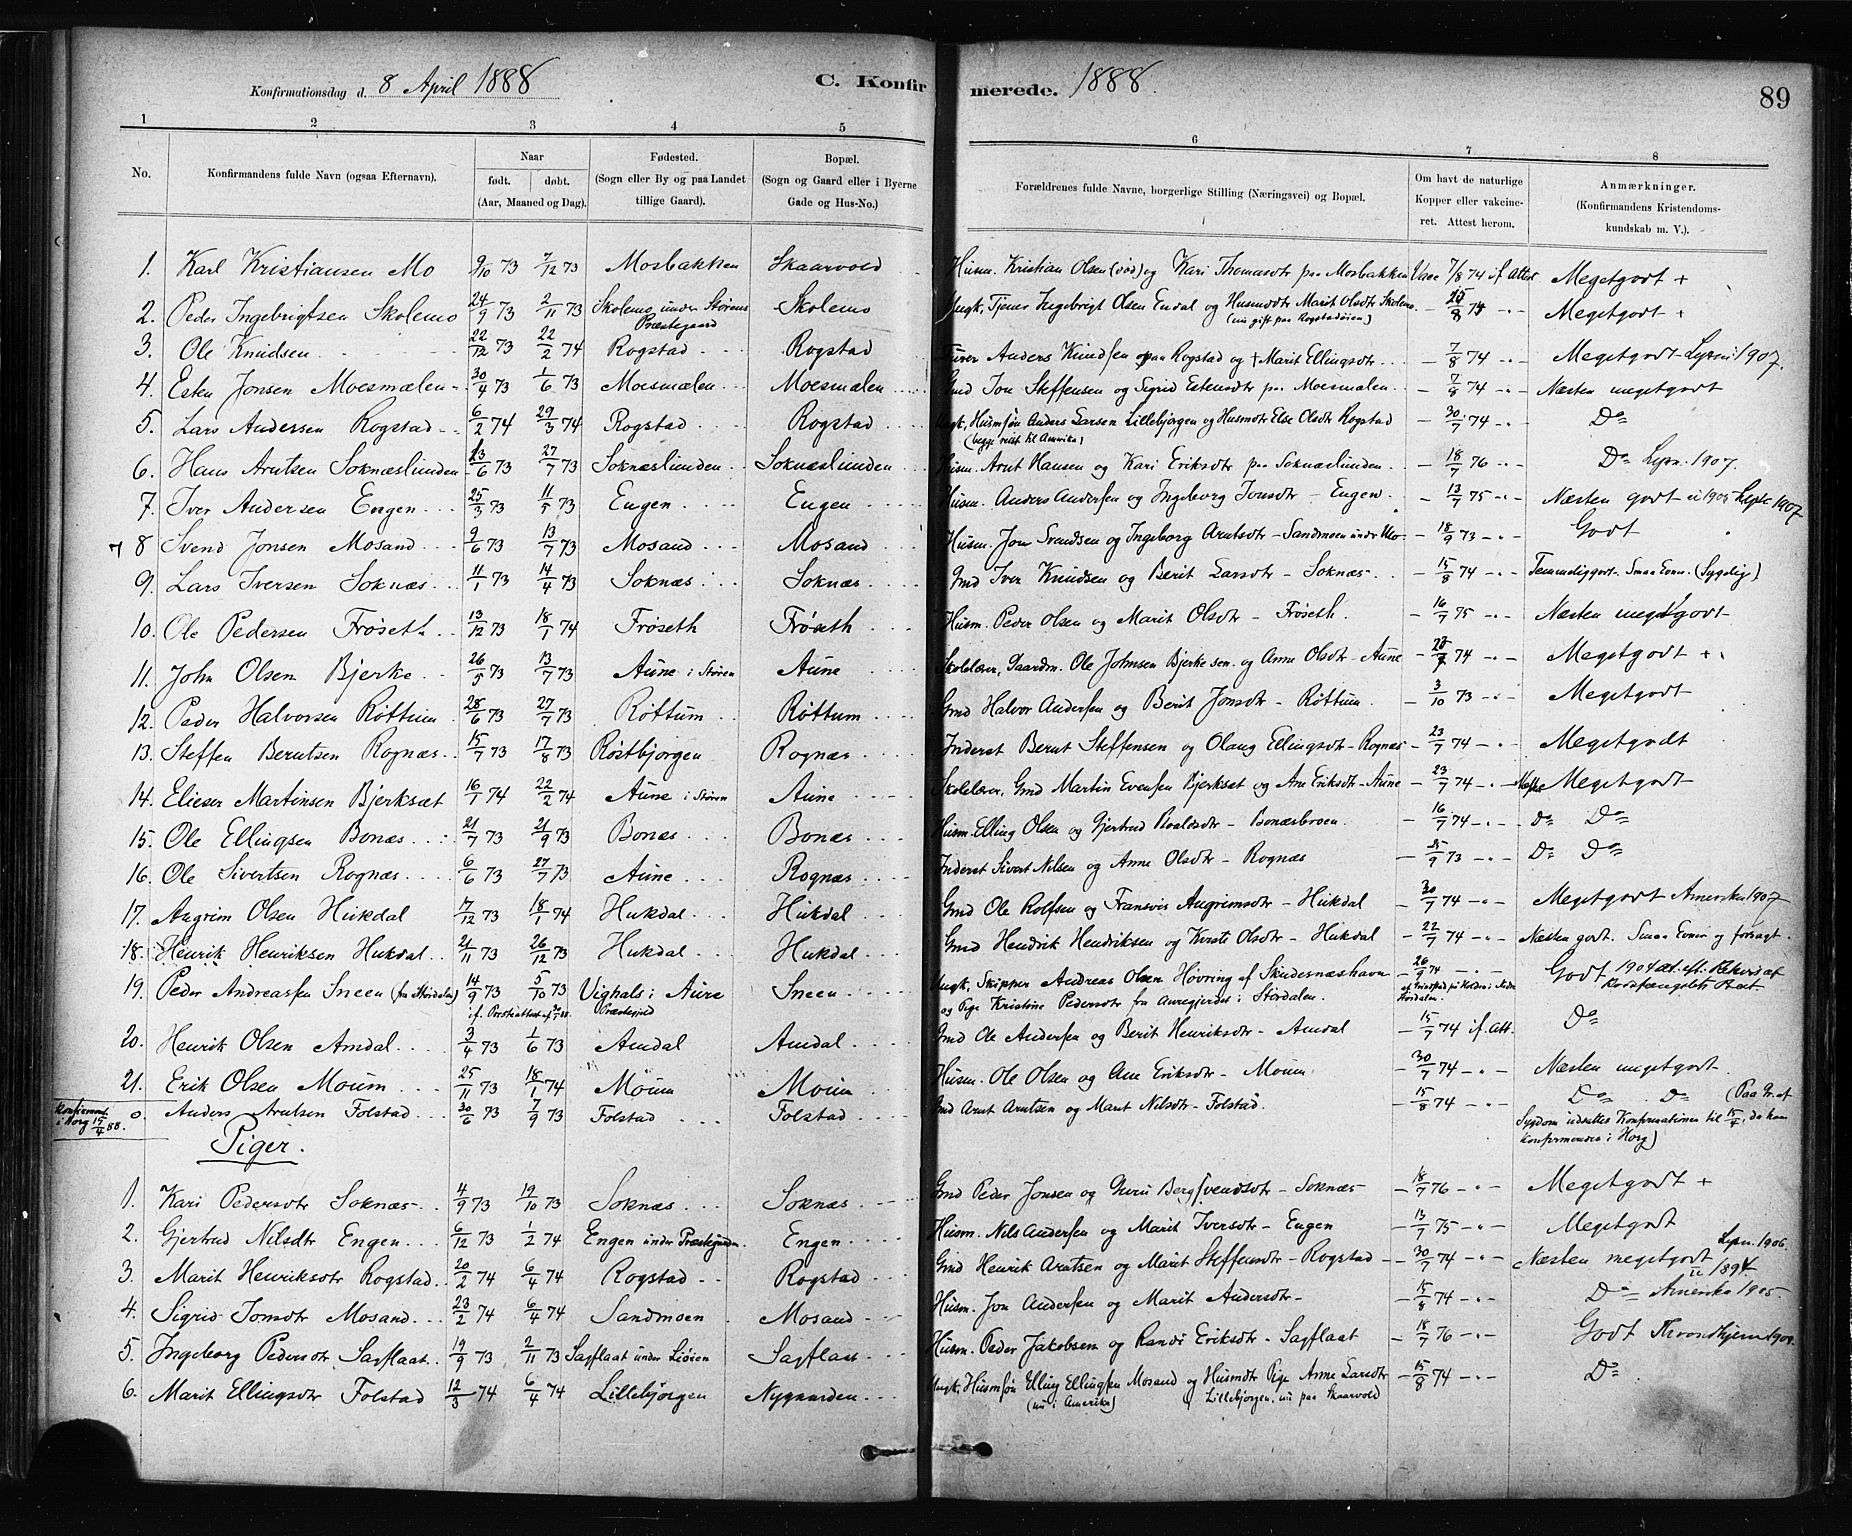 Konfirmationsdag d. 8 April 1888 C. Konfirmerede. 1888. 89
1 2 3 4 5 6 7 8
No. Konfirmandens fulde Navn (ogsaa Efternavn). Naar født. døbt. (Aar, Maaned og Dag). Fødested. (Sogn eller By og paa Landet tillige Gaard). Bopæl. (Sogn og Gaard eller i Byerne Gade og Hus-No.) Forældrenes fulde Navne, borgerlige Stilling (Næringsvei) og Bopæl. Om havt de naturlige Kopper eller vakcineret. Attest herom. Anmærkninger. (Konfirmandens Kristendomskundskab m. V.).
1. Karl Kristiansen Mo 9/10 73 7/12 73 Mosbakken Skaarvold Husm. Kristian Olsen (død) og Kari Thomasdtr paa Mosbakken Vacc 7/8 74 if Attest Megetgodt +
2. Peder Ingebrigtsen Skolemo 24/9 73 2/11 73 Skolemo under Størens Præstegaard Skolemo Ungk. Tjener Ingebrigt Olsen Endal og Husmdtr Marit Olsdtr Skolemo (nu gift paa Rogstadøien) Megetgodt +
3. Ole Knudsen 22/12 73 22/2 74 Rogstad Rogstad Anders Knudsen paa Rogstad og + Marit Ellingsdtr - 7/8 74 -"- Megetgodt 1907.
4. Esten Jonsen Moesmælen 30/4 73 1/6 73 Moesmælen Moesmælen Gmd Jon Steffensen og Sigrid Estensdtr paa Moesmælen - 7/8 74 -"- Næsten megetgodt
5. Lars Andersen Rogstad 6/2 74 29/3 74 Rogstad Rogstad Ungk. Husmsøn Anders Larsen Lillebjørgen og Husmdtr Else Olsdtr Rogstad (begge reist til Amerika) - 30/7 74 -"- Do
6. Hans Arntsen Soknæslunden 23/6 73 27/7 73 Soknæslunden Soknæslunden Husm. Arnt Hansen og Kari Eriksdtr paa Soknæslunden - 18/7 76 -"- Do 1907.
7. Iver Andersen Engen 25/3 73 11/5 73 Engen Engen Husm. Anders Andersen og Ingeborg Jonsdtr - Engen - 13/7 75 -"- Næsten godt 1907
8 Svend Jonsen Mosand 9/6 73 13/7 73 Mosand Mosand Husm. Jon Svendsen og Ingeborg Arntsdtr - Sandmoen under Mo - 18/9 73 -"- Godt
9. Lars Iversen Soknæs 11/1 73 14/4 73 Soknæs Soknæs Gmd Iver Knudsen og Berit Larsdtr - Soknæs - 15/8 74 -"- Temmeliggodt. Smaa Evner. (Sygelig)
10. Ole Pedersen Frøseth 13/12 73 18/1 74 Frøseth Frøseth Husm. Peder Olsen og Marit Olsdtr - Frøseth. - 16/7 75 -"- Næsten megetgodt
11. John Olsen Bjerke 26/5 73 13/7 73 Aune i Støren Aune Skolelærer, Gaardm. Ole Johnsen Bjerke sen. og Anne Olsdtr - Aune 74 -"- Megetgodt +
12. Peder Halvorsen Røttum 28/6 73 27/7 73 Røttum Røttum Gmd Halvor Andersen og Berit Jonsdtr - Røttum - 3/10 73 -"- Megetgodt
13. Steffen Berntsen Rognæs 15/7 73 17/8 73 Røstbjørgen Rognæs Inderst Bernt Steffensen og Olaug Ellingsdtr - Rognæs - 23/7 74 -"- Megetgodt
14. Elieser Martinsen Bjerksæt 16/1 74 22/2 74 Aune i Støren Aune Skolelærer, Gmd Martin Evensen Bjerksæt og Ane Eriksdtr - Aune - 23/7 74 -"- Megetgodt
15. Ole Ellingsen Bonæs 21/7 73 21/9 73 Bonæs Bonæs Husm. Elling Olsen og Gjertrud Roaldsdtr - Bonæsbroen - 16/7 74 -"- Do Do
16. Ole Sivertsen Rognæs 6/6 73 27/7 73 Aune Rognæs Inderst Sivert Nilsen og Anne Olsdtr - Rognæs - 25/9 73 -"- Do Do
17. Angrim Olsen Hukdal 17/12 73 18/1 74 Hukdal Hukdal Gmd Ole Rolfsen og Angrimsdtr - Hukdal - 30/7 74 -"- Megetgodt Amerika 1907
18. Henrik Henriksen Hukdal 21/11 73 26/12 73 Hukdal Hukdal Gmd Hendrik Hendriksen og Kirsti Olsdtr - Hukdal - 22/7 74 -"- Næsten godt. Smaa Evner og forsagt.
19. Peder Andreassen Sneen (fra Stordalen) 14/9 73 5/10 73 Vighals i Aure Præstegjeld Sneen Ungk, Skipper Andreas Olsen Høvring af Skudesnæshavn og Pige Kristine Pedersdtr fra Auregjerdet i Stordalen. - 26/9 74 Godt
20. Henrik Olsen Amdal 3/4 73 1/6 73 Amdal Amdal Gmd Ole Andersen og Berit Henriksdtr - Amdal - 15/7 74 if. Att. Do
21. Erik Olsen Moum 25/11 73 18/1 74 Moum Moum Husm. Ole Olsen og Ane Eriksdtr - Moum - 30/7 74 -"- Næsten megetgodt.
Konfirmeret i Horg 15/4 88. 0. Anders Arntsen Folstad 30/6 73 7/9 73 Folstad Folstad Gmd Arnt Arntsen og Marit Nilsdtr - Folstad. - 15/8 74 -"- Do Do (Paa Gr. af Sygdom udsattes Konfirmationen til 15/4, da han konfirmeredes i Horg)
Piger.
1. Kari Pedersdtr Soknæs 4/9 73 19/10 73 Soknæs Soknæs Gmd Peder Jonsen og Svendsdtr - Soknæs - 18/7 76 -"- Megetgodt +
2. Gjertrud Nilsdtr Engen 6/12 73 1/2 74 Engen under Præstegaarden. Engen Husm. Nils Andersen og Marit Iversdtr - Engen - 13/7 75 -"- Megetgodt
3. Marit Henriksdtr Rogstad 20/2 74 6/4 74 Rogstad Rogstad Gmd Henrik Arntsen og Marit Steffensdtr - Rogstad - 30/7 74 -"- Næsten megetgodt 1906.
4. Sigrid Jonsdtr Mosand 23/2 74 6/4 74 Sandmoen Mosand Husm. Jon Andersen og Marit Andersdtr - - 15/8 74 -"- Do 1894. Amerika 1905.
5. Ingeborg Pedersdtr Sagflaat 19/9 73 2/11 73 Sagflaat under Liøien Sagflaat Husm. Peder Jakobsen og Randi Eriksdtr - Sagflaat - 18/7 76 -"- Godt Throndhjem
6. Marit Ellingsdtr Folstad 12/3 74 6/4 74 Lillebjørgen Nygaarden Ungk. Husmsøn Elling Ellingsen Mosand og Husmdtr Pige Anne Larsdtr (nu i Amerika) Lillebjørgen, nu paa Skaarvold - 15/8 74 -"- Do